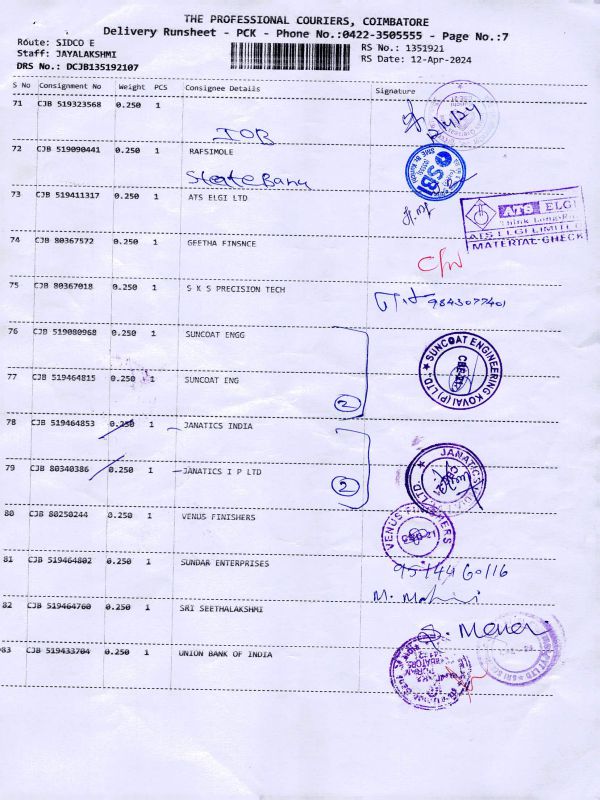 THE PROFESSIONAL COURIERS, COIMBATORE
Delivery Runsheet - PCK - Phone No.:0422-3505555 - Page No.:7
Route: SIDCO E
Staff: JAYALAKSHMI
DRS No.: DCJB135192107
RS No.: 1351921
RS Date: 12-Apr-2024
S No Consignment No Weight PCS Consignee Details Signature
71 CJB 519323568 0.250 1
IOB
12/4/24
72 CJB 519090441 0.250 1 RAFSIMOLE
State Bank
SBI
73 CJB 519411317 0.250 1 ATS ELGI LTD
ATS ELGI
ATS ELGI LIMITED
MATERIAL CHECK
74 CJB 80367572 0.250 1 GEETHA FINSNCE
75 CJB 80367018 0.250 1 S K S PRECISION TECH
9843077401
76 CJB 519080968 0.250 1 SUNCOAT ENGG
SUNCOAT ENGINEERING KOVAI (P) LTD.
77 CJB 519464815 0.250 1 SUNCOAT ENG
2
78 CJB 519464853 0.250 1 JANATICS INDIA
79 CJB 80340386 0.250 1 JANATICS I P LTD
2
JANATICS
80 CJB 80250244 0.250 1 VENUS FINISHERS
VENUS FINISHERS
81 CJB 519464802 0.250 1 SUNDAR ENTERPRISES
82 CJB 519464760 0.250 1 SRI SEETHALAKSHMI
83 CJB 519433704 0.250 1 UNION BANK OF INDIA